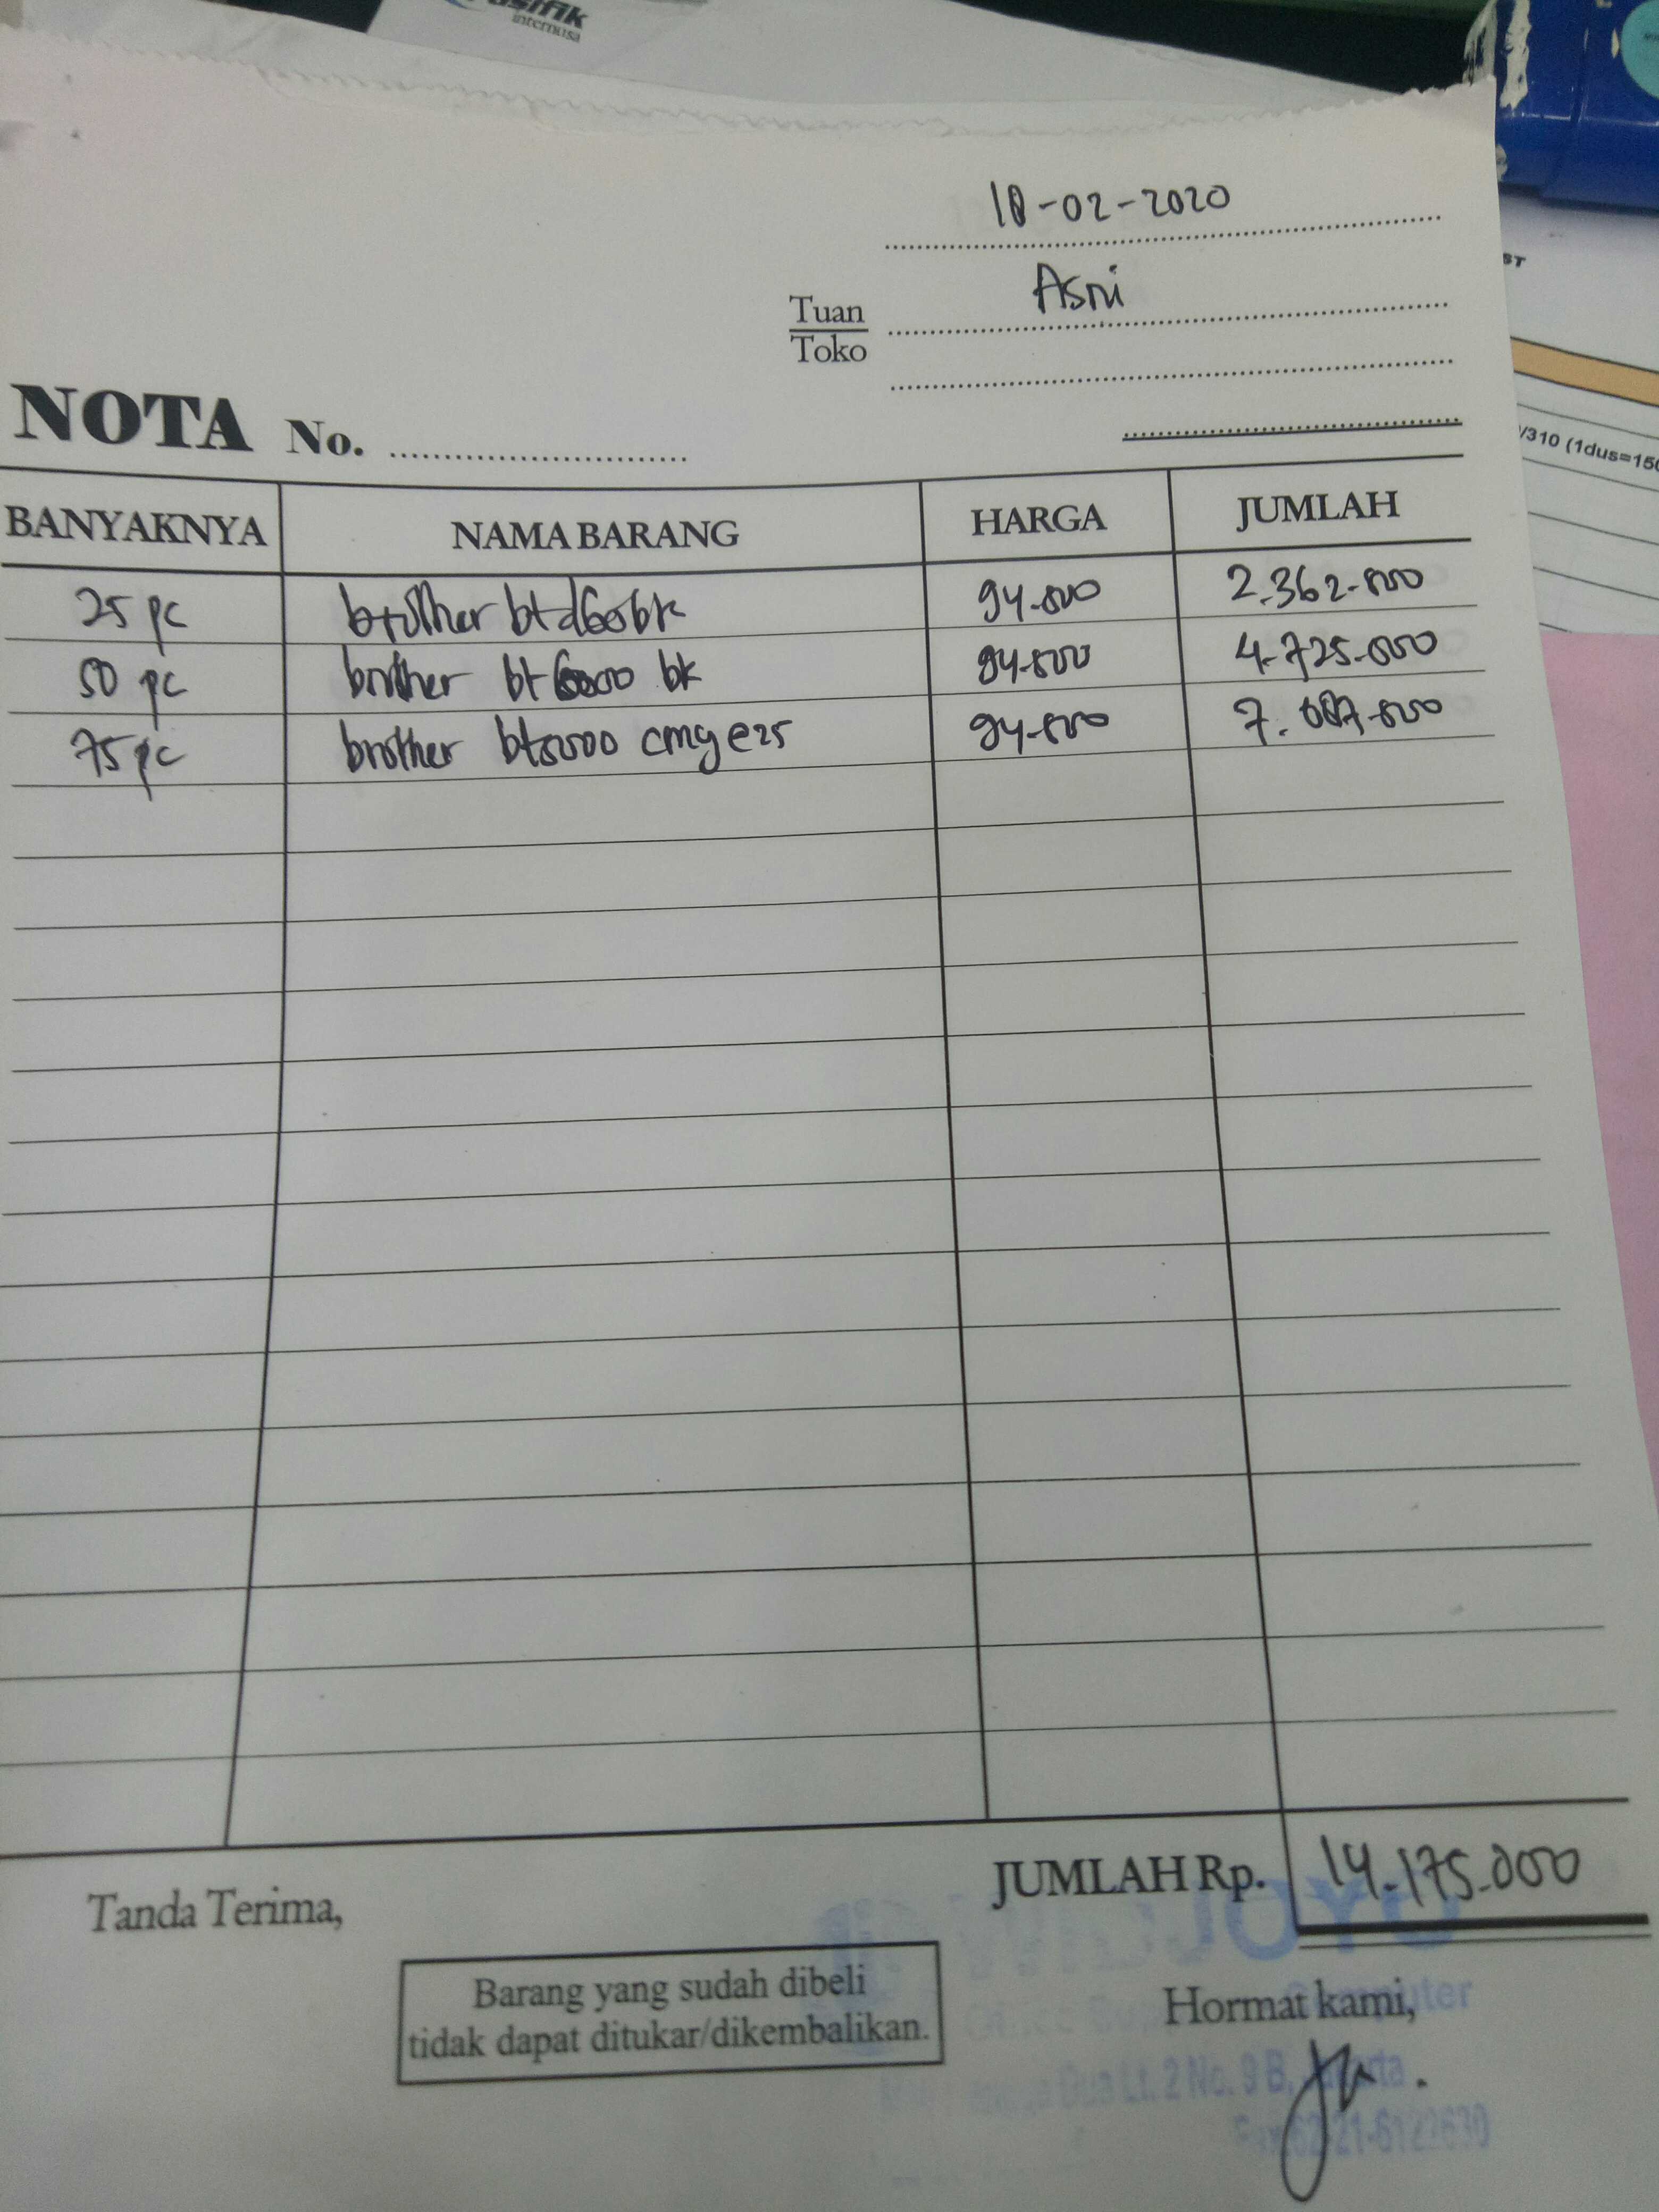 internusa
ST
10-02-2020
Tuan Asni
Toko
/310 (1dus=150
NOTA No.
BANYAKNYA NAMA BARANG HARGA JUMLAH
25 pc brother btd60bk 94.500 2.362.500
50 pc brother bt6000 bk 94.500 4.725.000
75 pc brother bt5000 cmy e25 94.500 7.087.500
JUMLAH Rp. 14.175.000
Tanda Terima,
Barang yang sudah dibeli
tidak dapat ditukar/dikembalikan.
Hormat kami,
Dua Lt. 2 No. 9 B,